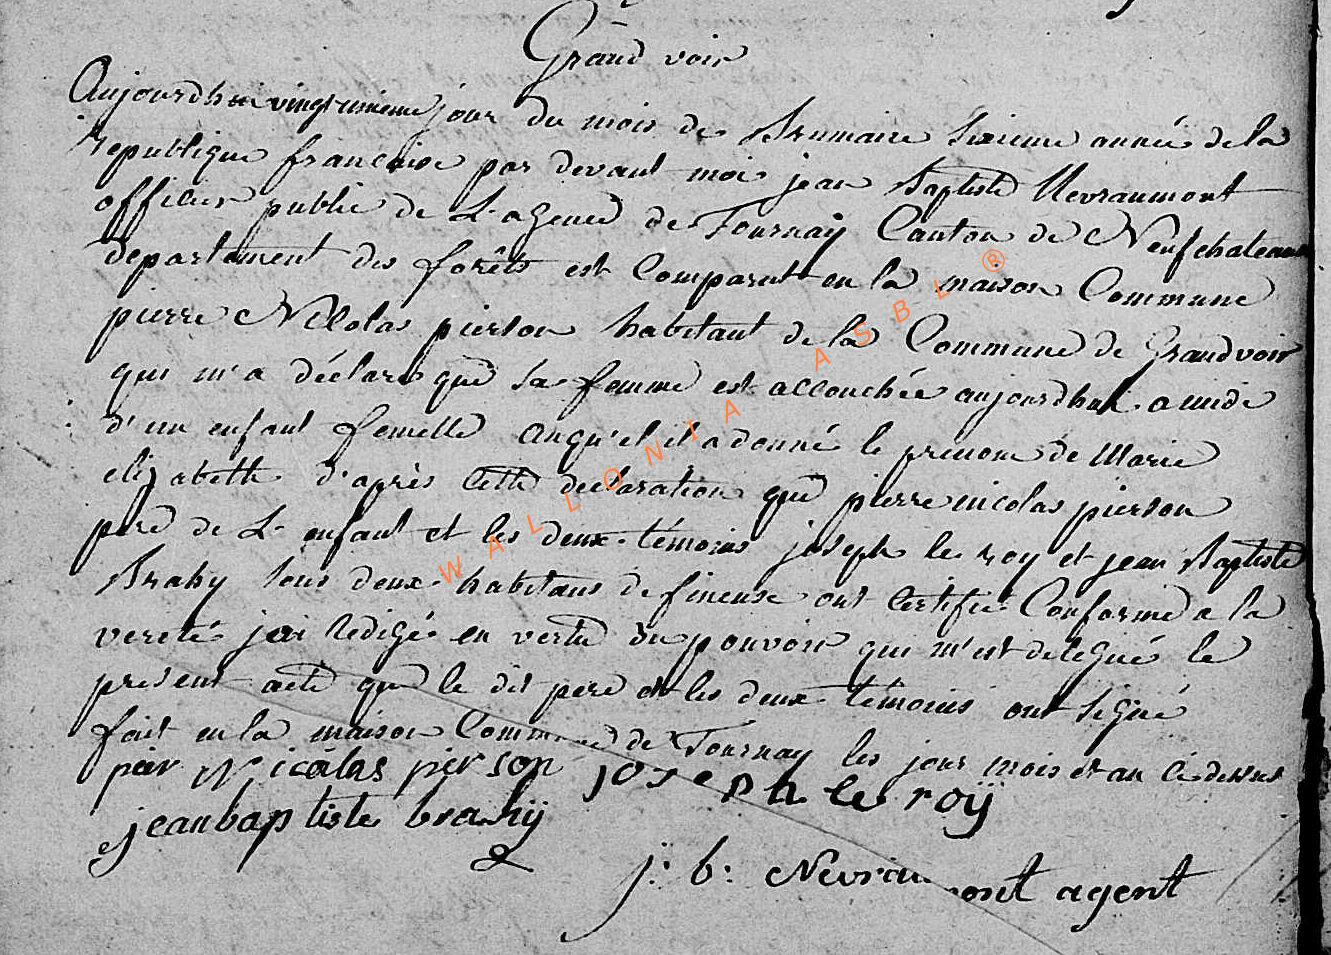 Grand voir
Aujourdhui vingt unieme jour du mois de Brumaire sixieme année de la
republique francaise par devant moi jean Baptiste Nevraumont
officier public de L'agence de Tournay Canton de Neufchateau
departement des forêts est Comparut en la maison Commune
pierre Nicolas pierson habitant de la Commune de Grandvoir
qui m'a déclaré que sa femme est accouchée aujourdhui a midi
d'un enfant femelle auqu'el il a donné le prenom de Marie
elizabeth d'après cette declaration que pierre nicolas pierson
pere de L'enfant et les deux témoins joseph le roy et jean Baptiste
Brahy tous deux habitans de fineuse ont certifié Conforme a la
vereté jai redigé en vertu du pouvoir qui m'est delegué le
present acte que le dit pere et les deux témoins ont signé
fait en la maison Commune de Tournay les jour mois et an ci dessus
pier Nicolas pierson joseph le roÿ
jean baptiste brahÿ
j: b: Nevraumont agent
WALLONIA ASBL ®